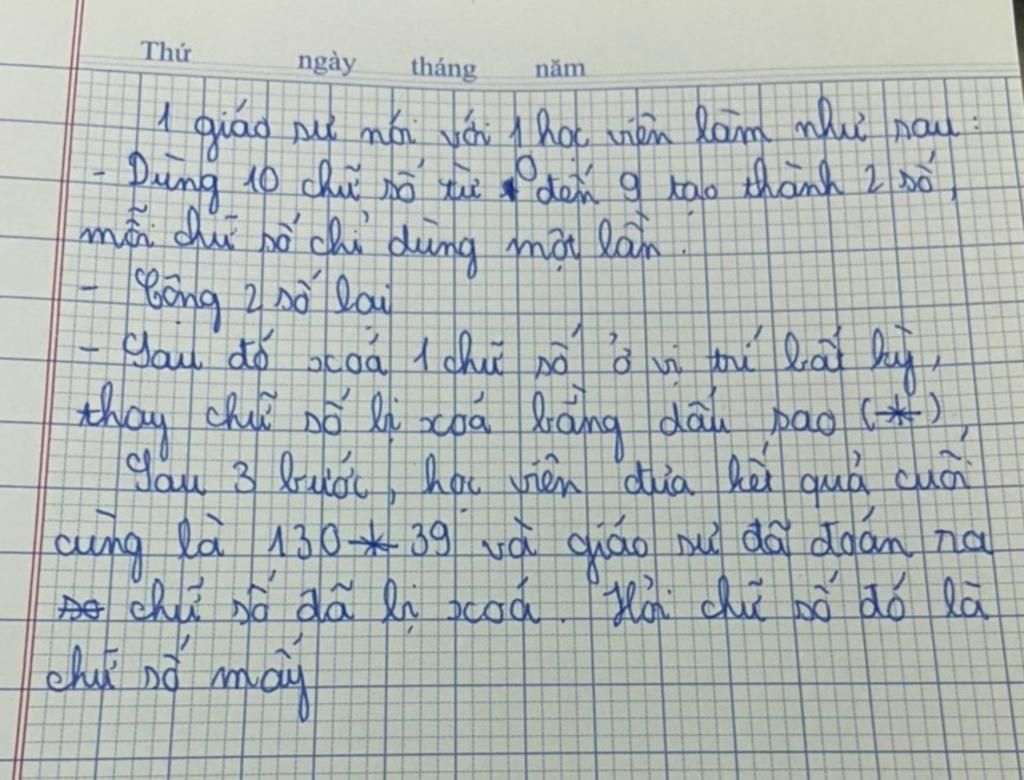 Thứ ngày tháng năm
1 giáo sư nói với 1 học viên làm như sau:
- Dùng 10 chữ số từ 0 đến 9 tạo thành 2 số,
mỗi chữ số chỉ dùng một lần.
- Cộng 2 số lại
- Sau đó xoá 1 chữ số ở vị trí bất kỳ,
thay chữ số bị xoá bằng dấu sao (*)
Sau 3 bước, học viên đưa kết quả cuối
cùng là 130*39 và giáo sư đã đoán ra
chữ số đã bị xoá. Hỏi chữ số đó là
chữ số mấy